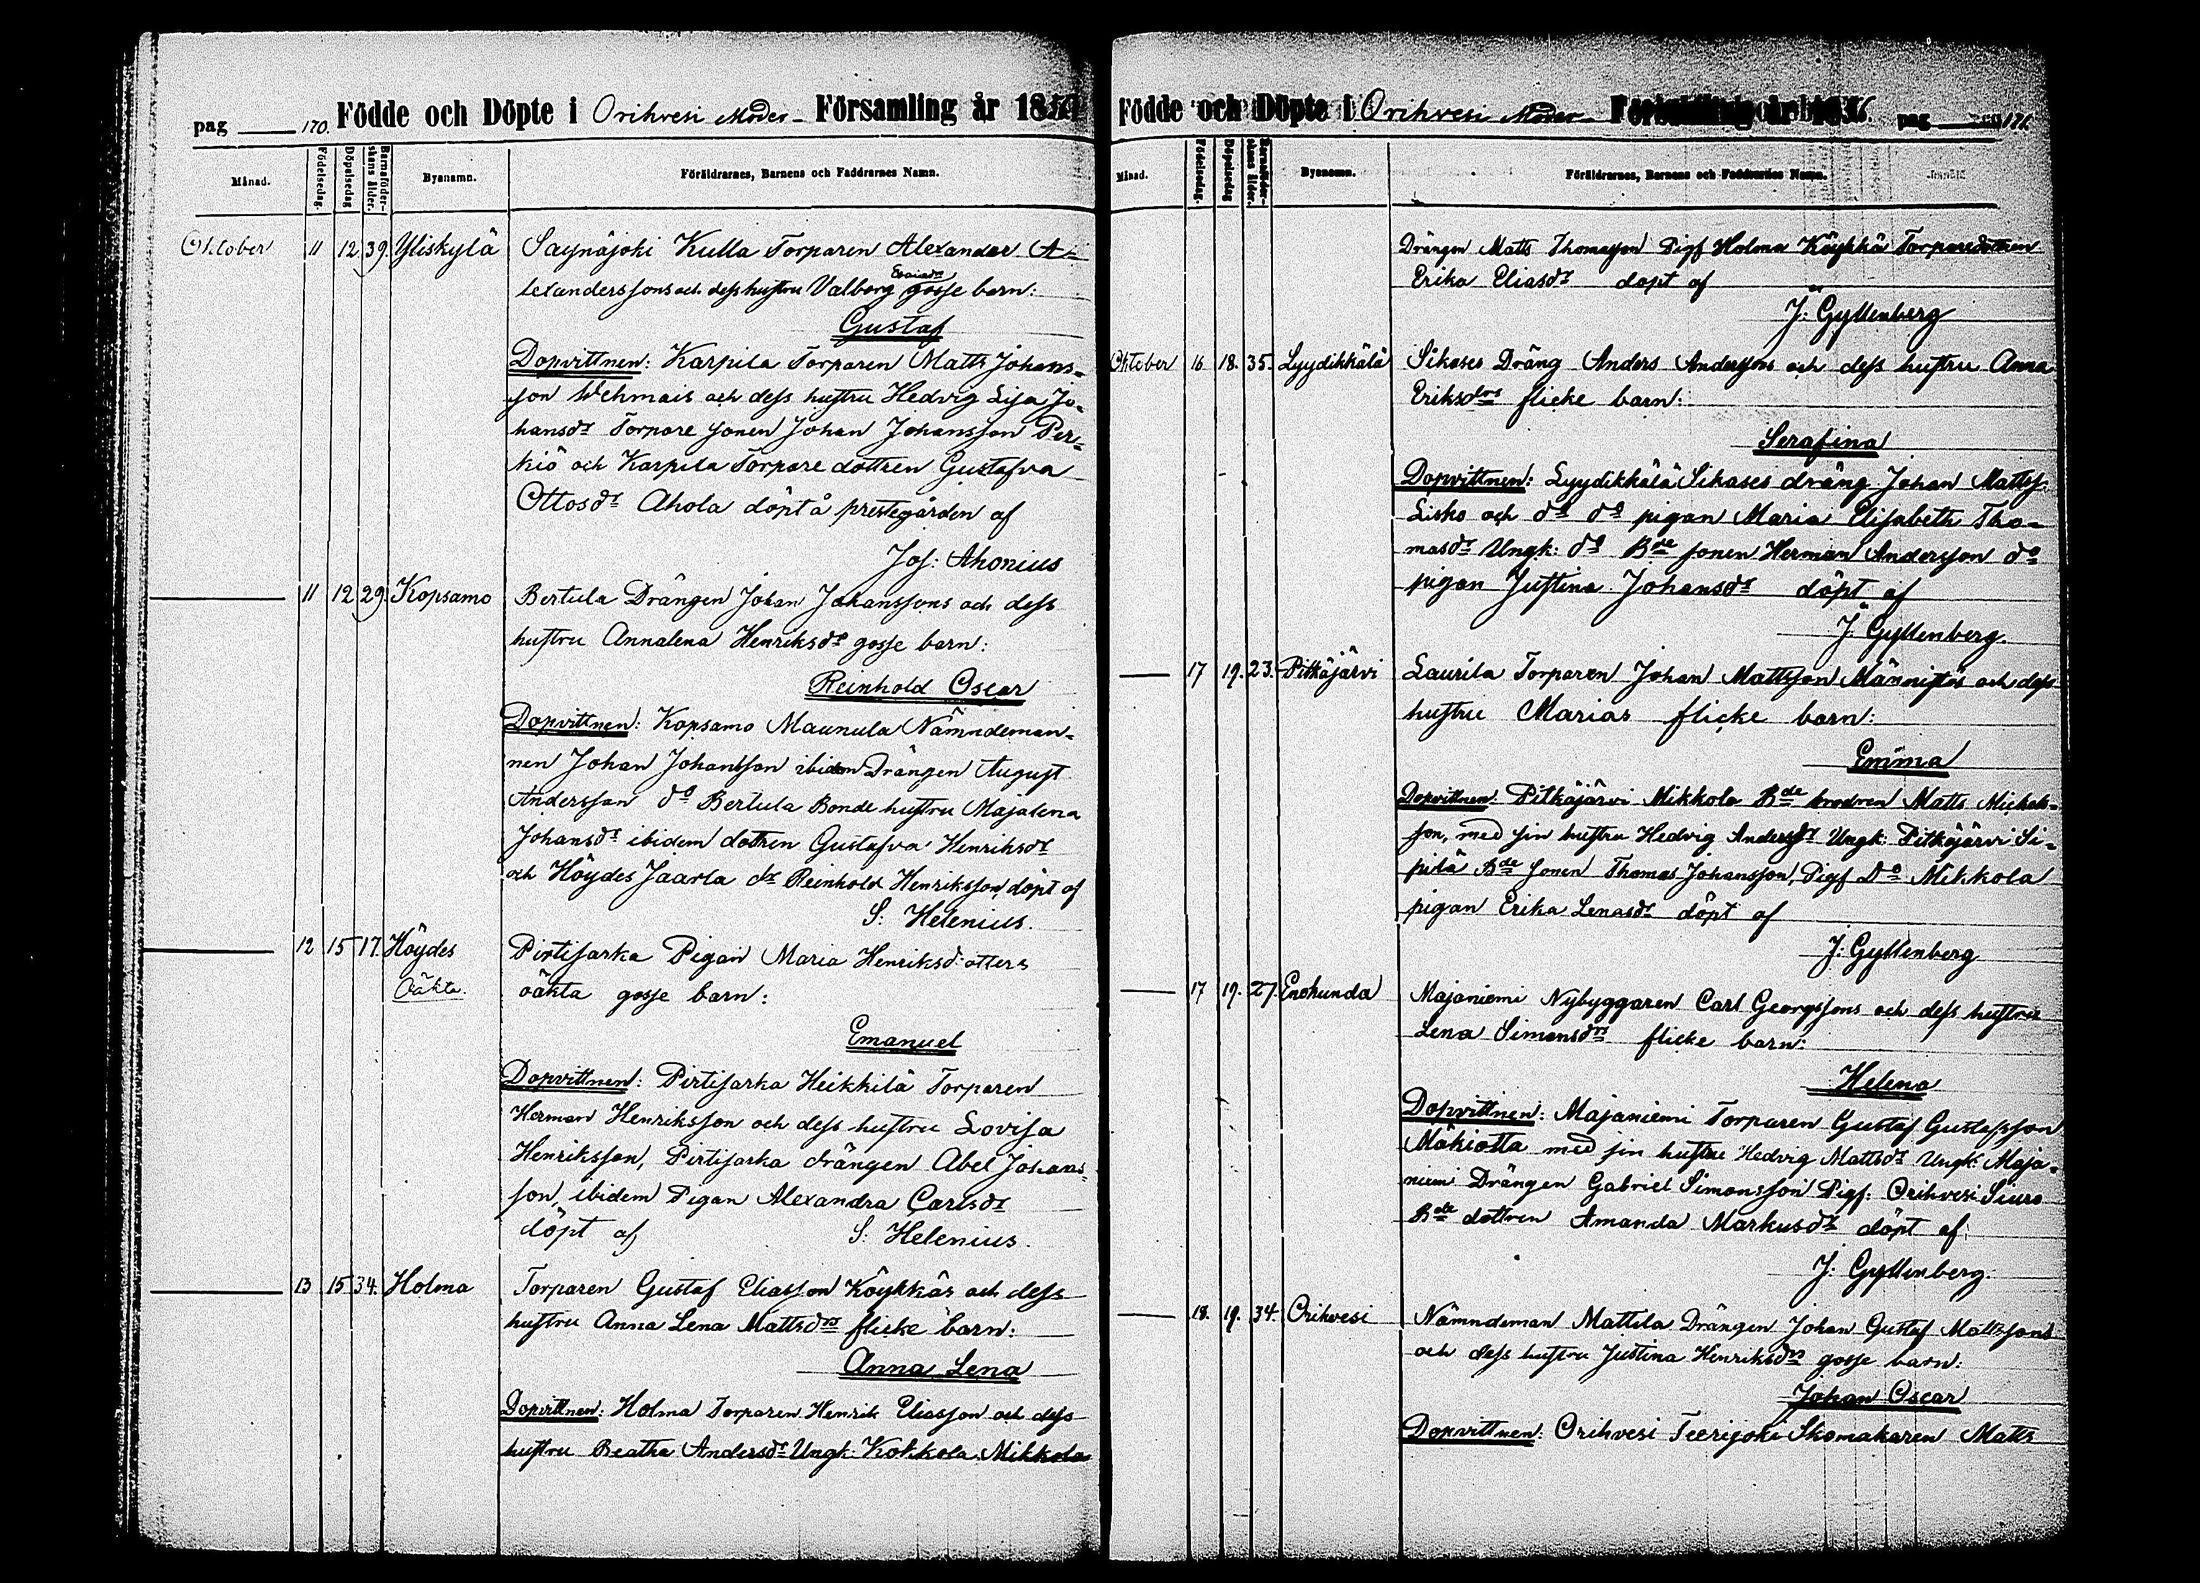 pag 170. Födde och Döpte i Orihvesi Moder- Församling år 185
Månad. Födelsedag. Döpelsedag Barnaföderskans ålder. Bynamn. Föräldrarnes, Barnens och Faddrarnes Namn.
Oktober 11 12 39. Yliskylä Saynäjoki Kulla Torparen Alexander A-
lexanderssons och dess hustru Valborg gosse barn:
Gustaf
Dopvittnen: Karpila Torparen Matts Johans-
son Wehmais och dess hustru Hedvig Lisa Jo-
hansdr Torpare sonen Johan Johansson Per-
kiö och Karpila Torpare dottren Gustafva
Ottosdr Ahola döpt å prestegården af
Jos: Ahonius
11 12 29. Kopsamo Bertula Drängen Johan Johanssons och dess
hustru Annalena Henriksdr gosse barn:
Reinhold Oscar
Dopvittnen: Kopsamo Maunula Nämndeman-
nen Johan Johansson ibidem Drängen August
Andersson do Bertula Bonde hustru Majalena
Johansdr ibidem dottren Gustafva Henriksdr
och Höydes Jaarla dr Reinhold Henriksson, döpt af
S: Helenius.
12 15 17. Höydes Pirtisarka Pigan Maria Henriksdotters
Oäkta. oäkta gosse barn:
Emanuel
Dopvittnen: Pirtisarka Heikkilä Torparen
Herman Henriksson och dess hustru Lovisa
Henriksson, Pirtisarka drängen Abel Johans-
son, ibidem Pigan Alexandra Carlsdr
döpt af S: Helenius.
13 15 34. Holma Torparen Gustaf Eliasson Köykkäs och dess
hustru Anna Lena Mattsdrs flicke barn:
Anna Lena
Dopvittnen: Holma Torparen Henrik Eliasson och dess
hustru Beatha Andersdr Ungk: Kokkola Mikkola
Födde och Döpte i Orihvesi Moder- Församling år pag 171.
Månad. Födelsedag. Döpelsedag Barnaföderskans ålder. Bynamn. Föräldrarnes, Barnens och Faddrarnes Namn.
Drängen Matts Thomasson Pigf Holma Köykkä Torparedottren
Erika Eliasdr döpt af
J: Gyllenberg
Oktober 16 18. 35. Lyydikkälä Sikases Dräng Anders Anderssons och dess hustru Anna
Eriksdrs flicke barn:
Serafina
Dopvittnen: Lyydikkälä Sikases dräng Johan Mattss.
Lisko och do do pigan Maria Elisabeth Tho-
masdr Ungk: do Bde sonen Herman Andersson do
pigan Justina Johansdr döpt af
J: Gyllenberg.
17 19. 23. Pitkäjärvi Laurila Torparen Johan Mattsson Männistös och dess
hustru Marias flicke barn:
Emma
Dopvittnen: Pitkäjärvi Mikkola Bde brodren Matts Michels-
son, med sin hustru Hedvig Andersdr Ungk: Pitkäjärvi Si-
pilä Bde sonen Thomas Johansson, Pigf Do Mikkola
pigan Erika Lenasdr döpt af
J: Gyllenberg
17 19. 27. Enokunda Majaniemi Nybyggaren Carl Georgssons och dess hustru
Lena Simonsdrs flicke barn:
Helena
Dopvittnen: Majaniemi Torparen Gustaf Gustafsson
Mäkiotta med sin hustru Hedvig Mattsdr Ungk: Maja-
niemi Drängen Gabriel Simonsson Pigf: Orihvesi Siuro
Bde dottren Amanda Markusdr döpt af.
J: Gyllenberg.
18. 19. 34. Orihvesi Nämndeman Mattila Drängen Johan Gustaf Mattssons
och dess hustru Justina Henriksdrs gosse barn:
Johan Oscar
Dopvittnen: Orihvesi Teerijoki Skomakaren Matts